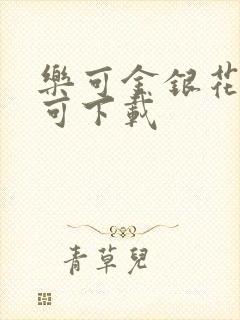 樂可金銀花
可下載
青草兒